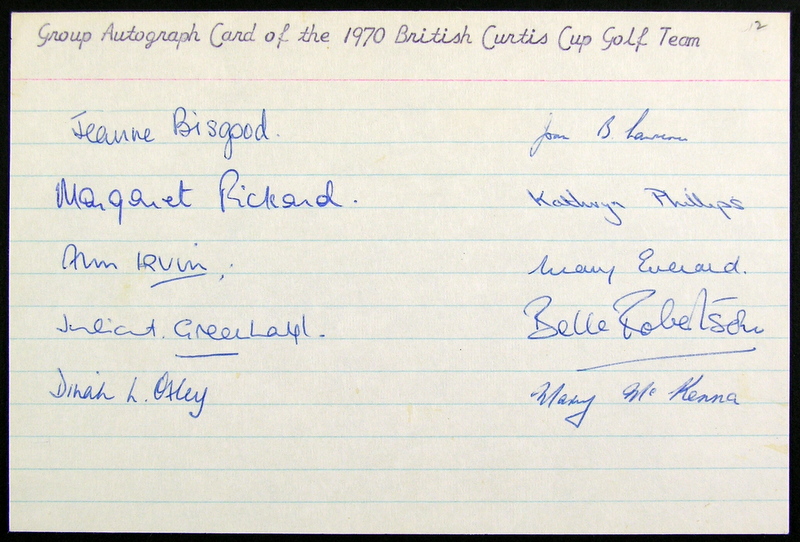 Group Autograph Card of the 1970 British Curtis Cup Golf Team
12
Jeanne Bisgood.
Joan B. Lawrence
Margaret Pickard.
Kathryn Phillips
Ann IRVIN
Mary Everard.
Julia Greenhalgh.
Belle Robertson
Dinah L. Oxley
Mary McKenna